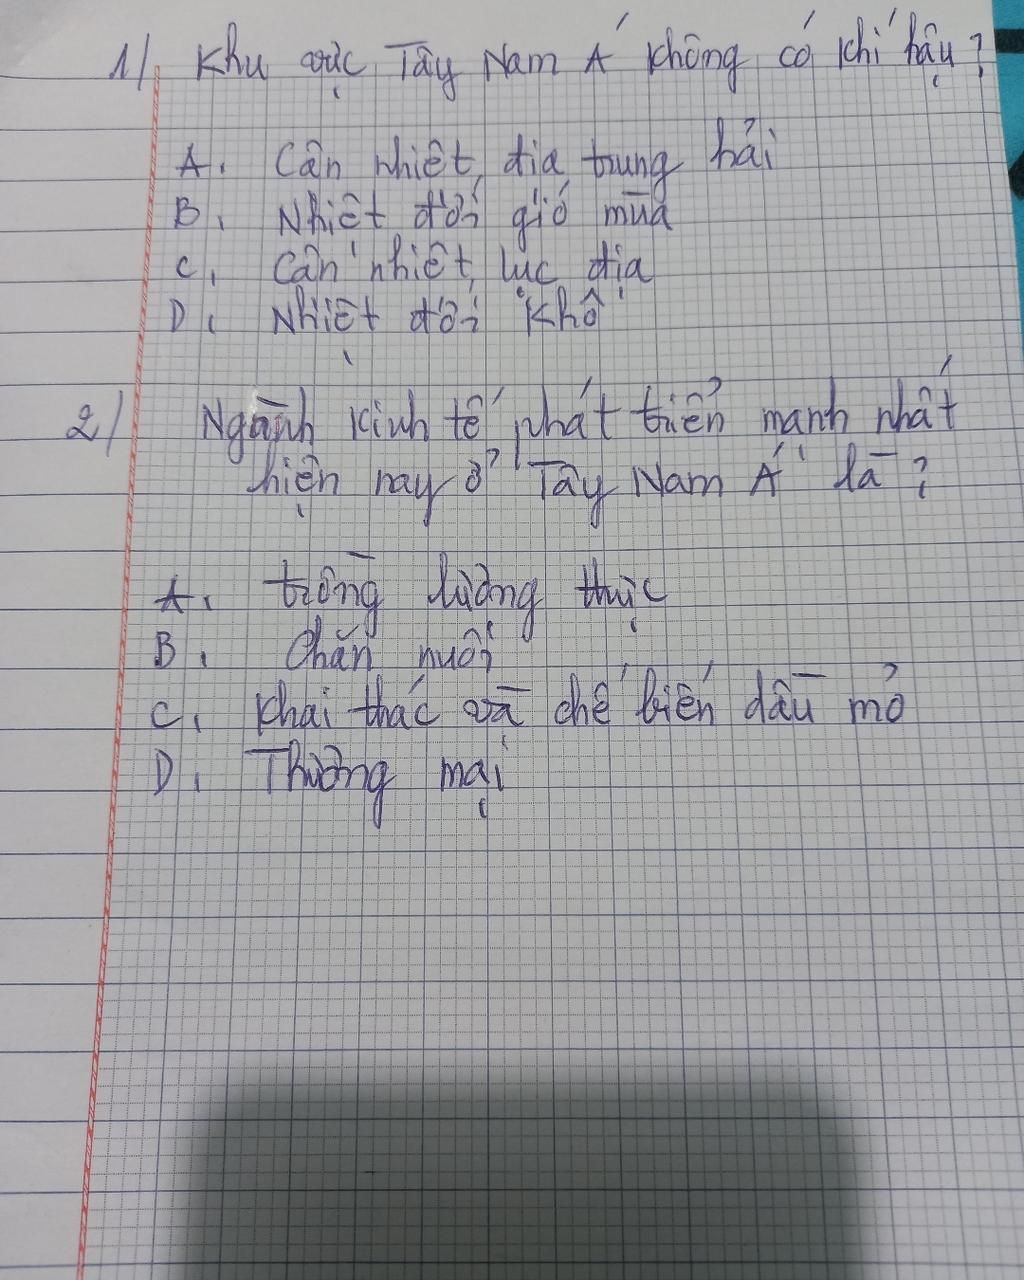 1) Khu vực Tây Nam Á không có khí hậu?
A. Cận nhiệt địa trung hải
B. Nhiệt đới gió mùa
C. Cận nhiệt lục địa
D. Nhiệt đới khô
2) Ngành kinh tế phát triển mạnh nhất
hiện nay ở Tây Nam Á là?
A. trồng lương thực
B. Chăn nuôi
C. Khai thác và chế biến dầu mỏ
D. Thương mại